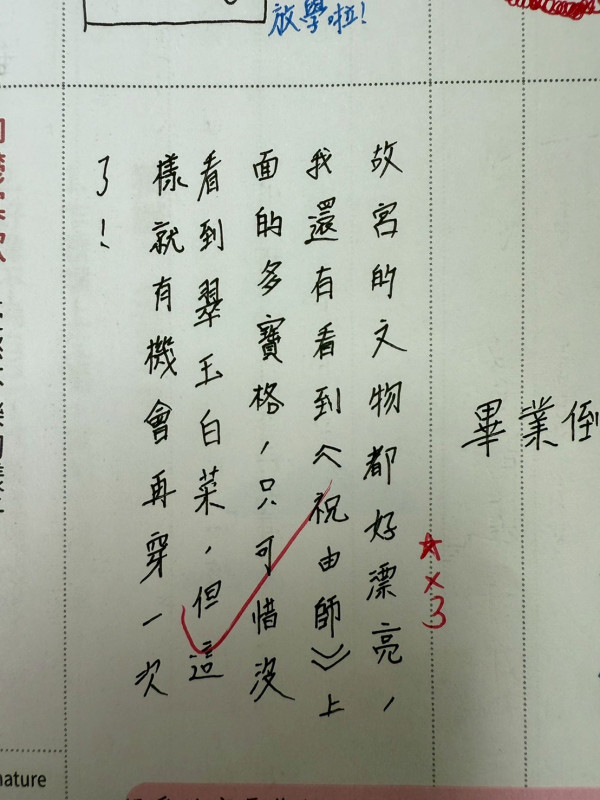 放學啦!
畢業倒
☆×3
故宮的文物都好漂亮，
我還有看到《祝由師》上
面的多寶格，只可惜沒
看到翠玉白菜，但這
樣就有機會再穿一次
了！
nature